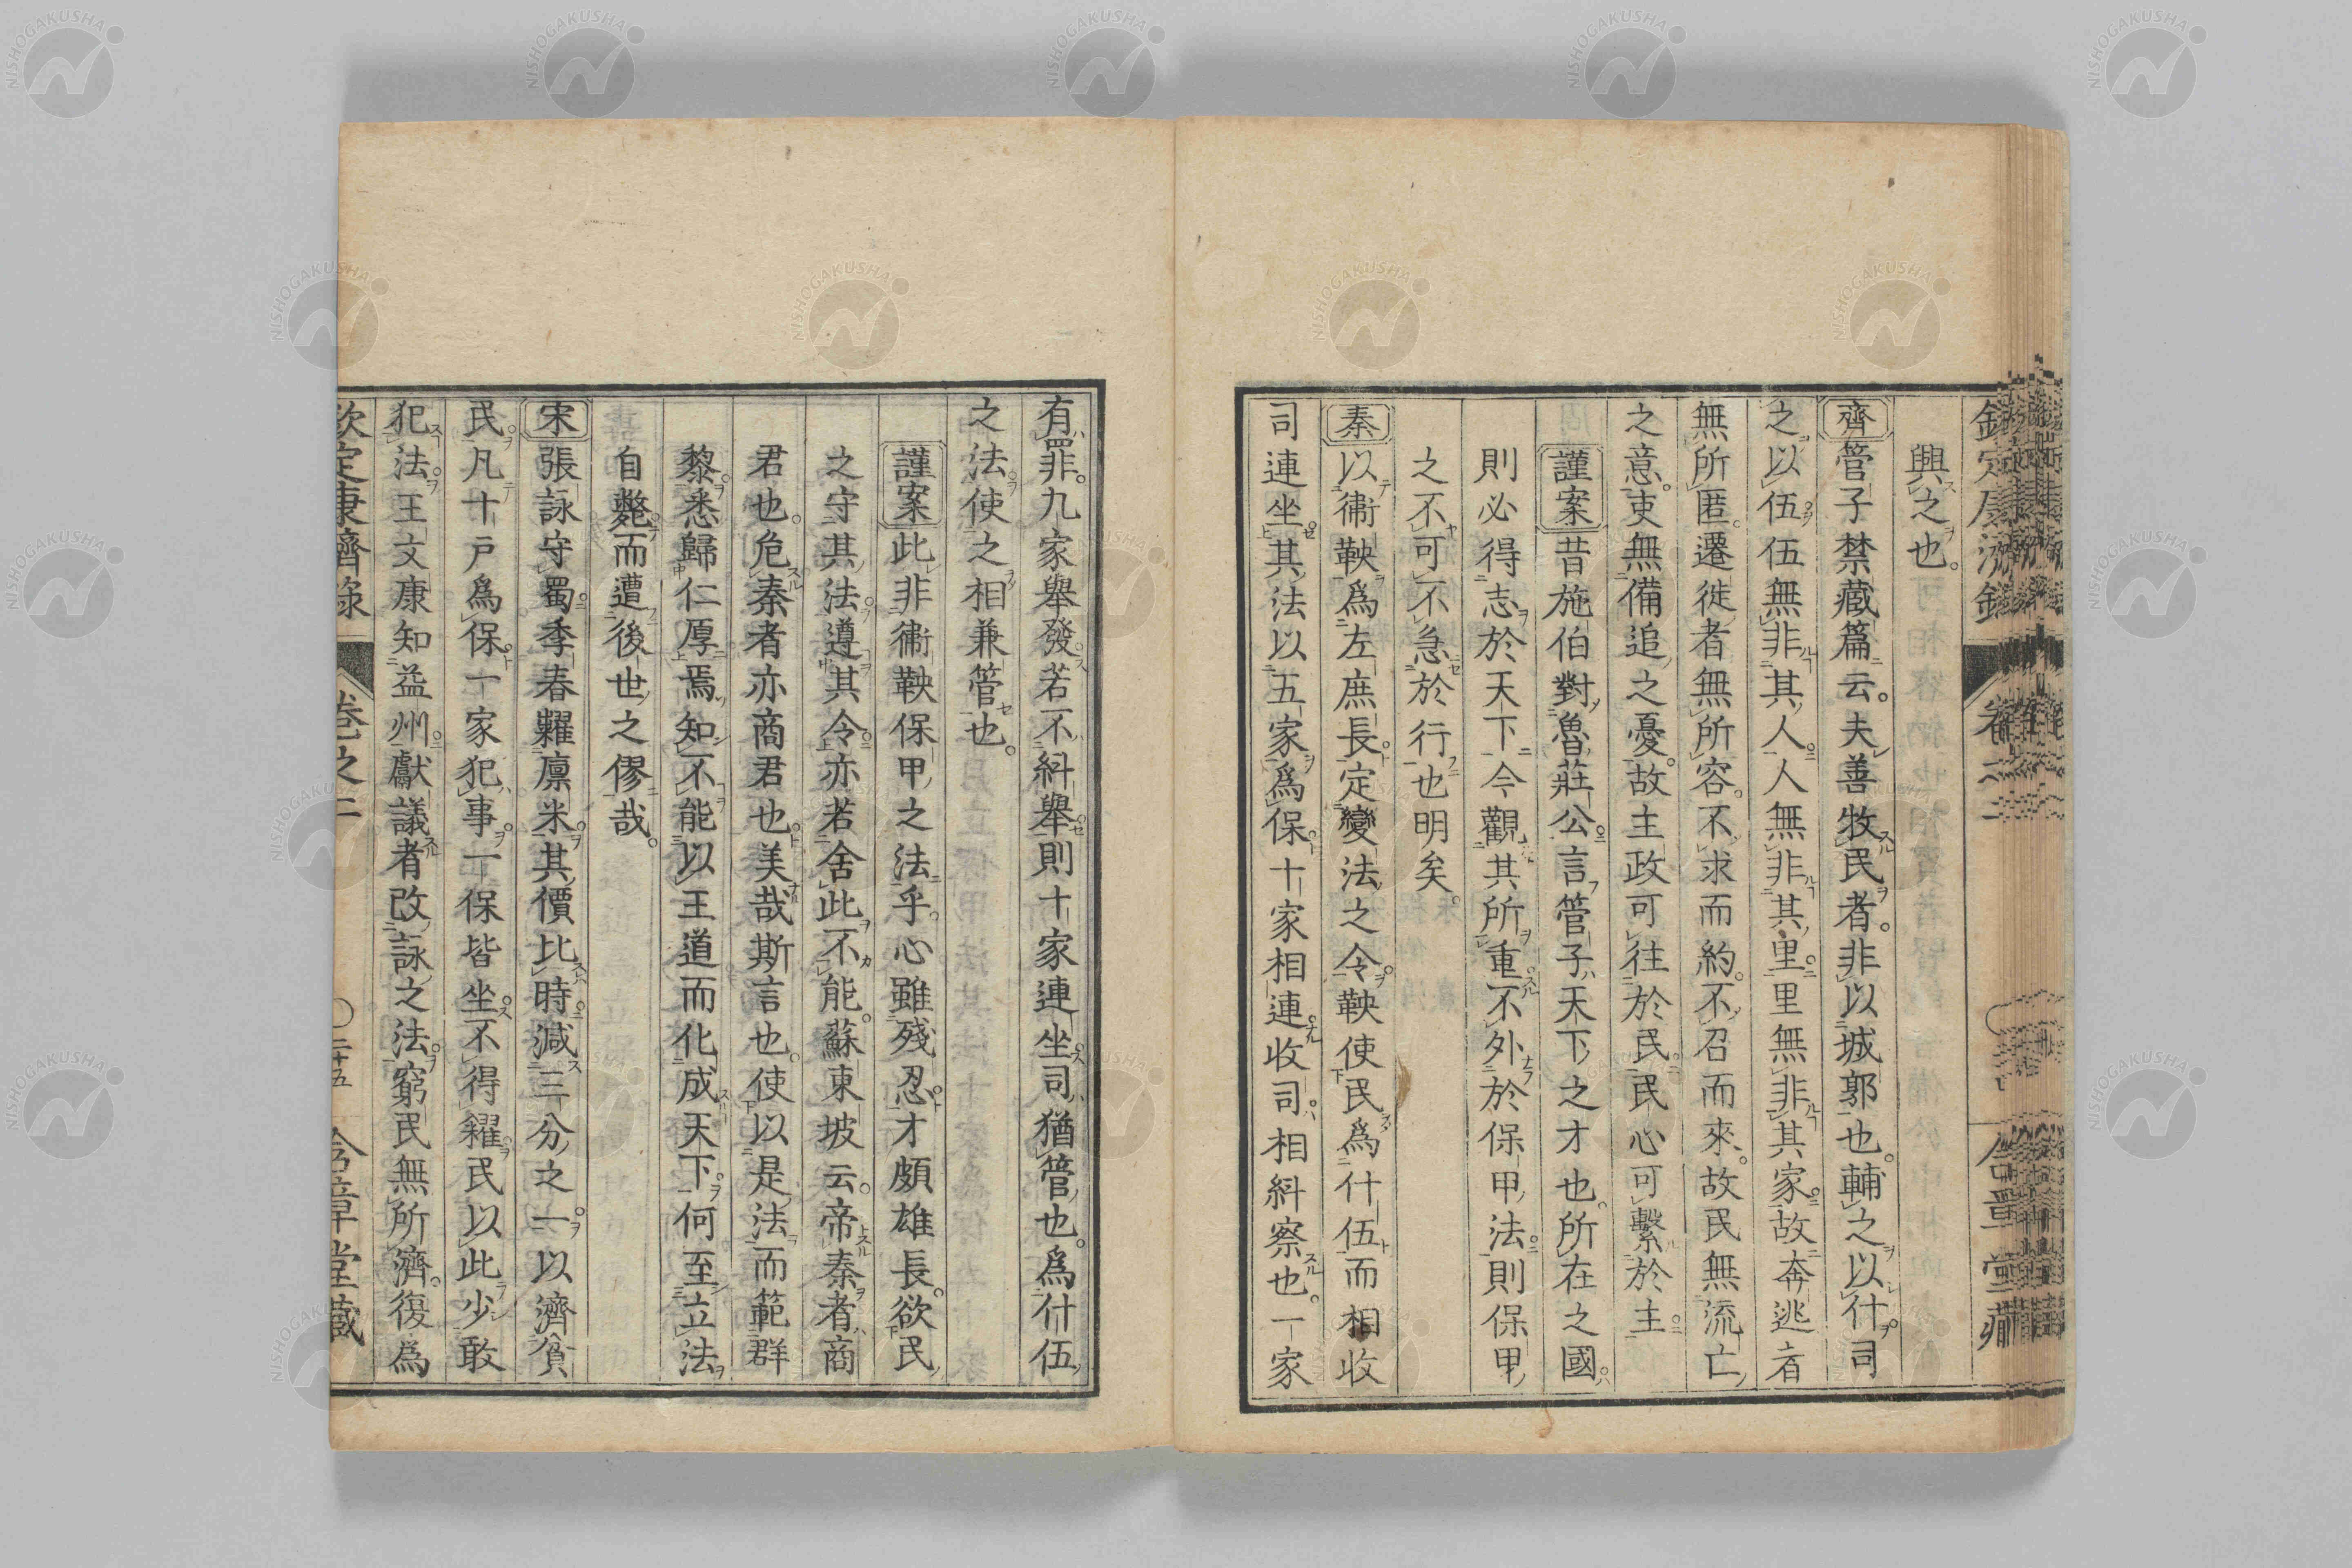 興之也。
齊管子禁藏篇云。夫善牧民者。非以城郭也。輔之以什司
之以伍伍無非其人人無非其里里無非其家故奔逃者
無所匿。遷徙者無所容。不求而約。不召而來。故民無流亡
之意。吏無備追之憂。故主政可往於民民心可繫於主
謹案昔施伯對魯莊公言管子天下之才也。所在之國。
則必得志於天下今觀其所重不外於保甲法則保甲
之不可不急於行也明矣。
秦以衞鞅爲左庶長定變法之令鞅使民爲什伍而相收
司連坐其法以五家爲保十家相連收司相糾察也。一家
有罪。九家舉發若不糾舉則十家連坐司猶管也。爲什伍
之法使之相兼管也。
謹案此非衞鞅保甲之法乎。心雖殘忍才頗雄長。欲民
之守其法遵其令亦若舍此不能。蘇東坡云。帝秦者商
君也。危秦者亦商君也美哉斯言也。使以是法而範群
黎悉歸仁厚焉知不能以王道而化成天下。何至立法
自斃而遭後世之僇哉。
宋張詠守蜀季春糶廩米其價比時減三分之一以濟貧
民。凡十戸爲保一家犯事一保皆坐不得糴民以此少敢
犯法。王文康知益州獻議者改詠之法窮民無所濟。復爲
欽定康濟録 卷之二 〇二十五 含章堂藏
NISHOGAKUSHA